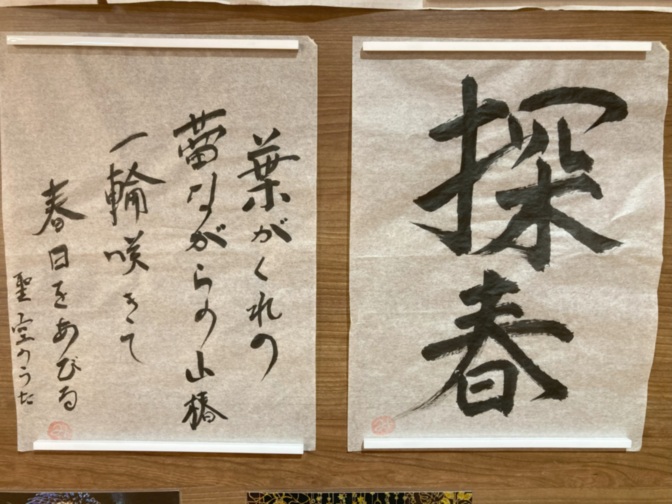 探春
葉がくれの
蕾ながらの山椿
一輪咲きて
春日をあびる
聖空のうた